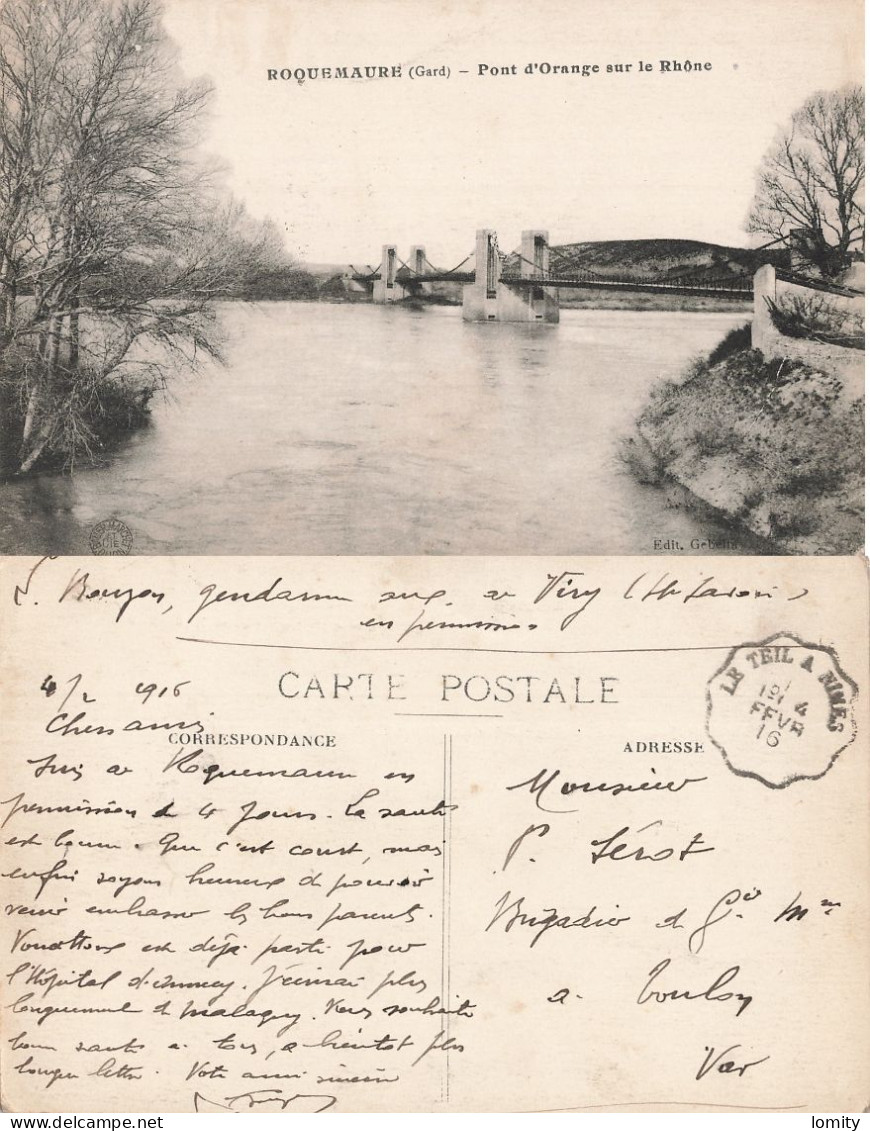 ROQUEMAURE (Gard) – Pont d'Orange sur le Rhône
Edit. Gebelin
Bouzon, gendarme à Viry (Hte Savoie)
en permission
4/2 1916
CARTE POSTALE
LE TEIL A NIMES
4
FEVR
16
Chers amis
CORRESPONDANCE
ADRESSE
Suis à Roquemaure en
permission de 4 jours. La santé
est bonne. Que c'est court, mais
enfin soyons heureux de pouvoir
venir embrasser les bons parents.
est déjà parti pour
l'Hôpital d'Annecy. J'écrirai plus
longuement de Malagny. Vous souhaite
bonne santé à tous, à bientôt plus
longue lettre. Votre ami sincère
Monsieur
P. Sérot
Brigadier de Gie Mme
à Toulon
Var
lomity